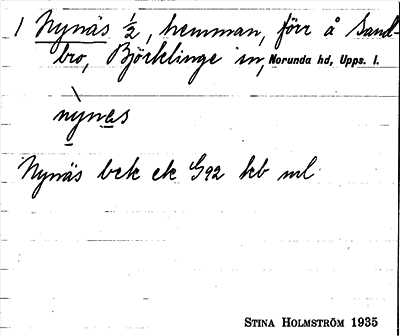 1 Nynäs 1/2, hemman, förr å Sand-
bro, Björklinge sn, Norunda hd, Upps. l.
nynes
Nynäs bek ek G92 kb ml
STINA HOLMSTRÖM 1935